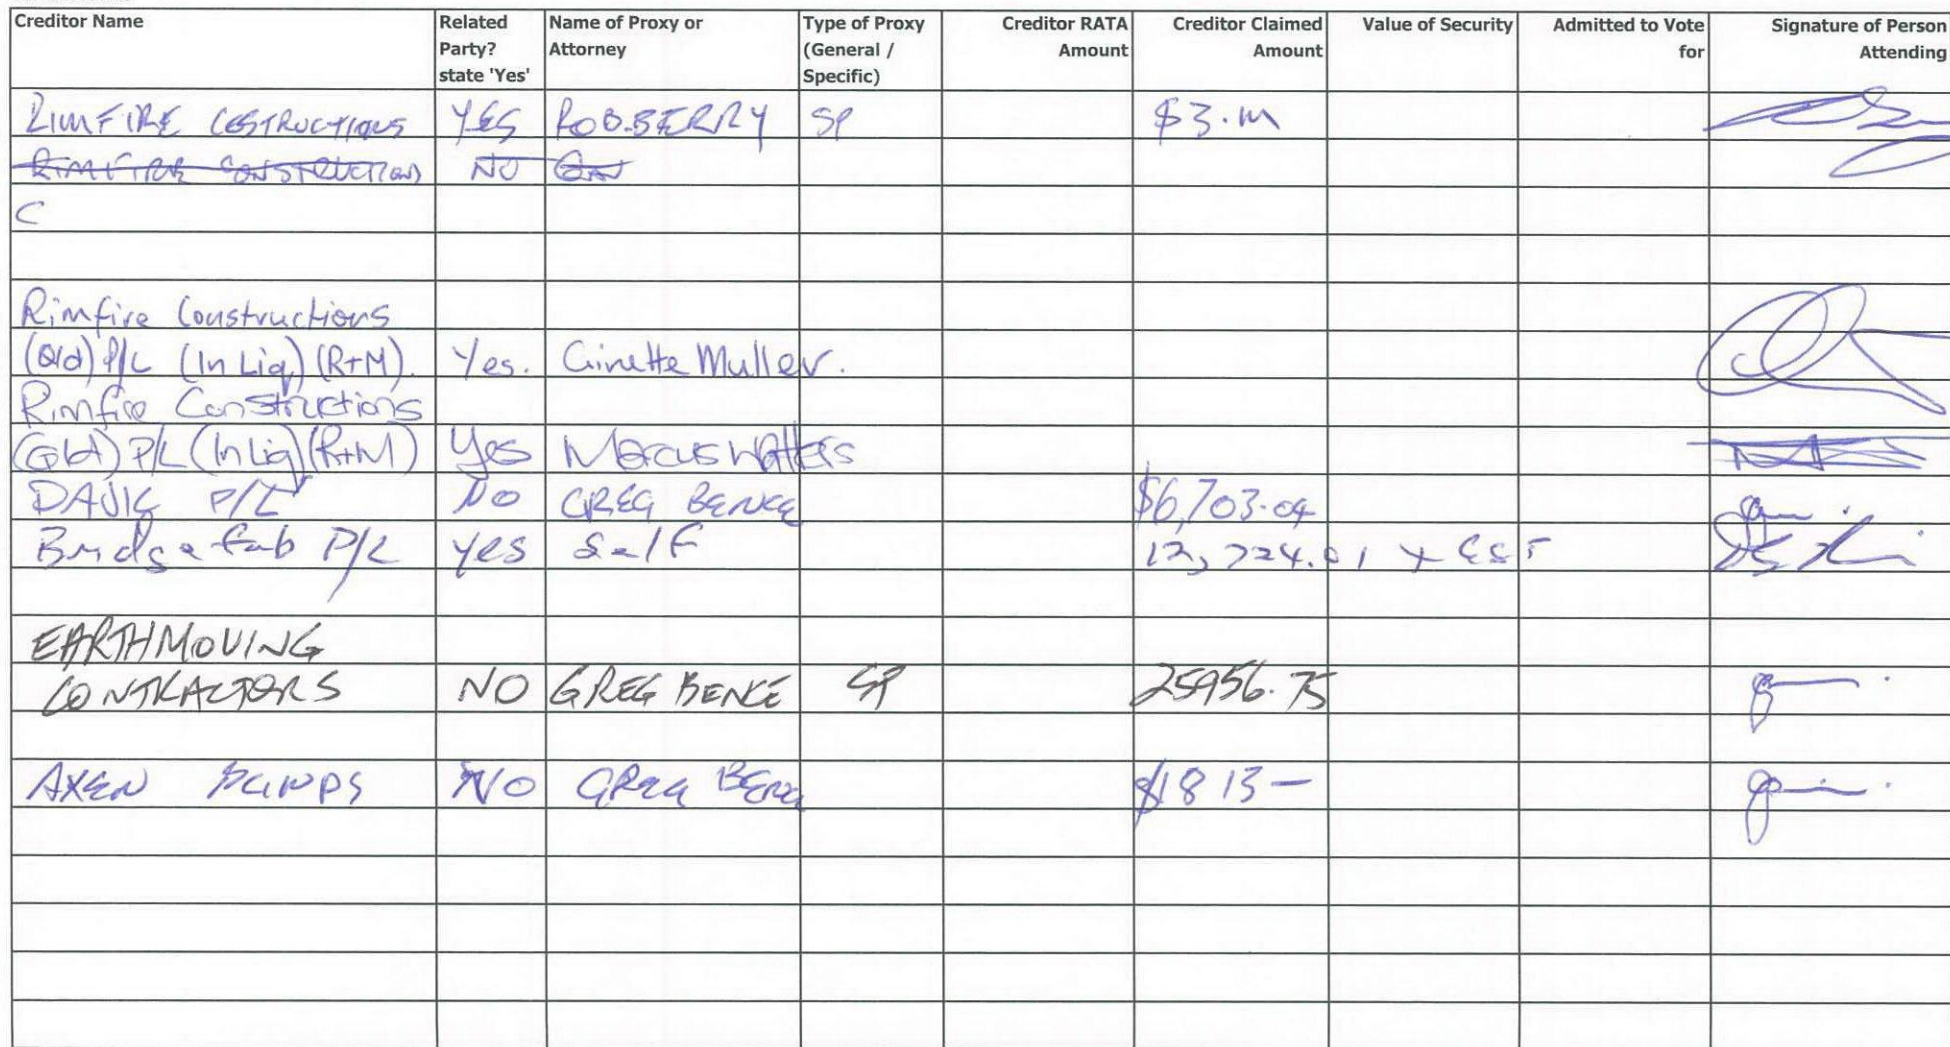 Creditor Name Related Party? state 'Yes' Name of Proxy or Attorney Type of Proxy (General / Specific) Creditor RATA Amount Creditor Claimed Amount Value of Security Admitted to Vote for Signature of Person Attending
RIMFIRE COSTRUCTIONS YES ROB.BERRY SP $3.M
RIMFIRE CONSTRUCTIONS NO
C
Rimfire Constructions
(Qld) P/L (In Liq) (R+M). Yes. Ginette Muller.
Rimfire Constructions
(Qld) P/L (In Liq) (R+M) Yes Marcus Watters
P/L NO GREG BENCE $6,703.04
Bridge fab P/L yes Self 12,724.01 + GST
EARTHMOVING
CONTRACTORS NO GREG BENCE SP 25956.75
AXEN PUMPS NO GREG BENCE $1813-